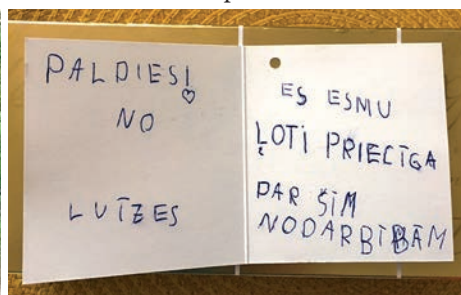 PALDIES!
NO
LUĪZES
ES ESMU
ĻOTI PRIECĪGA
PAR ŠĪM
NODARBĪBĀM